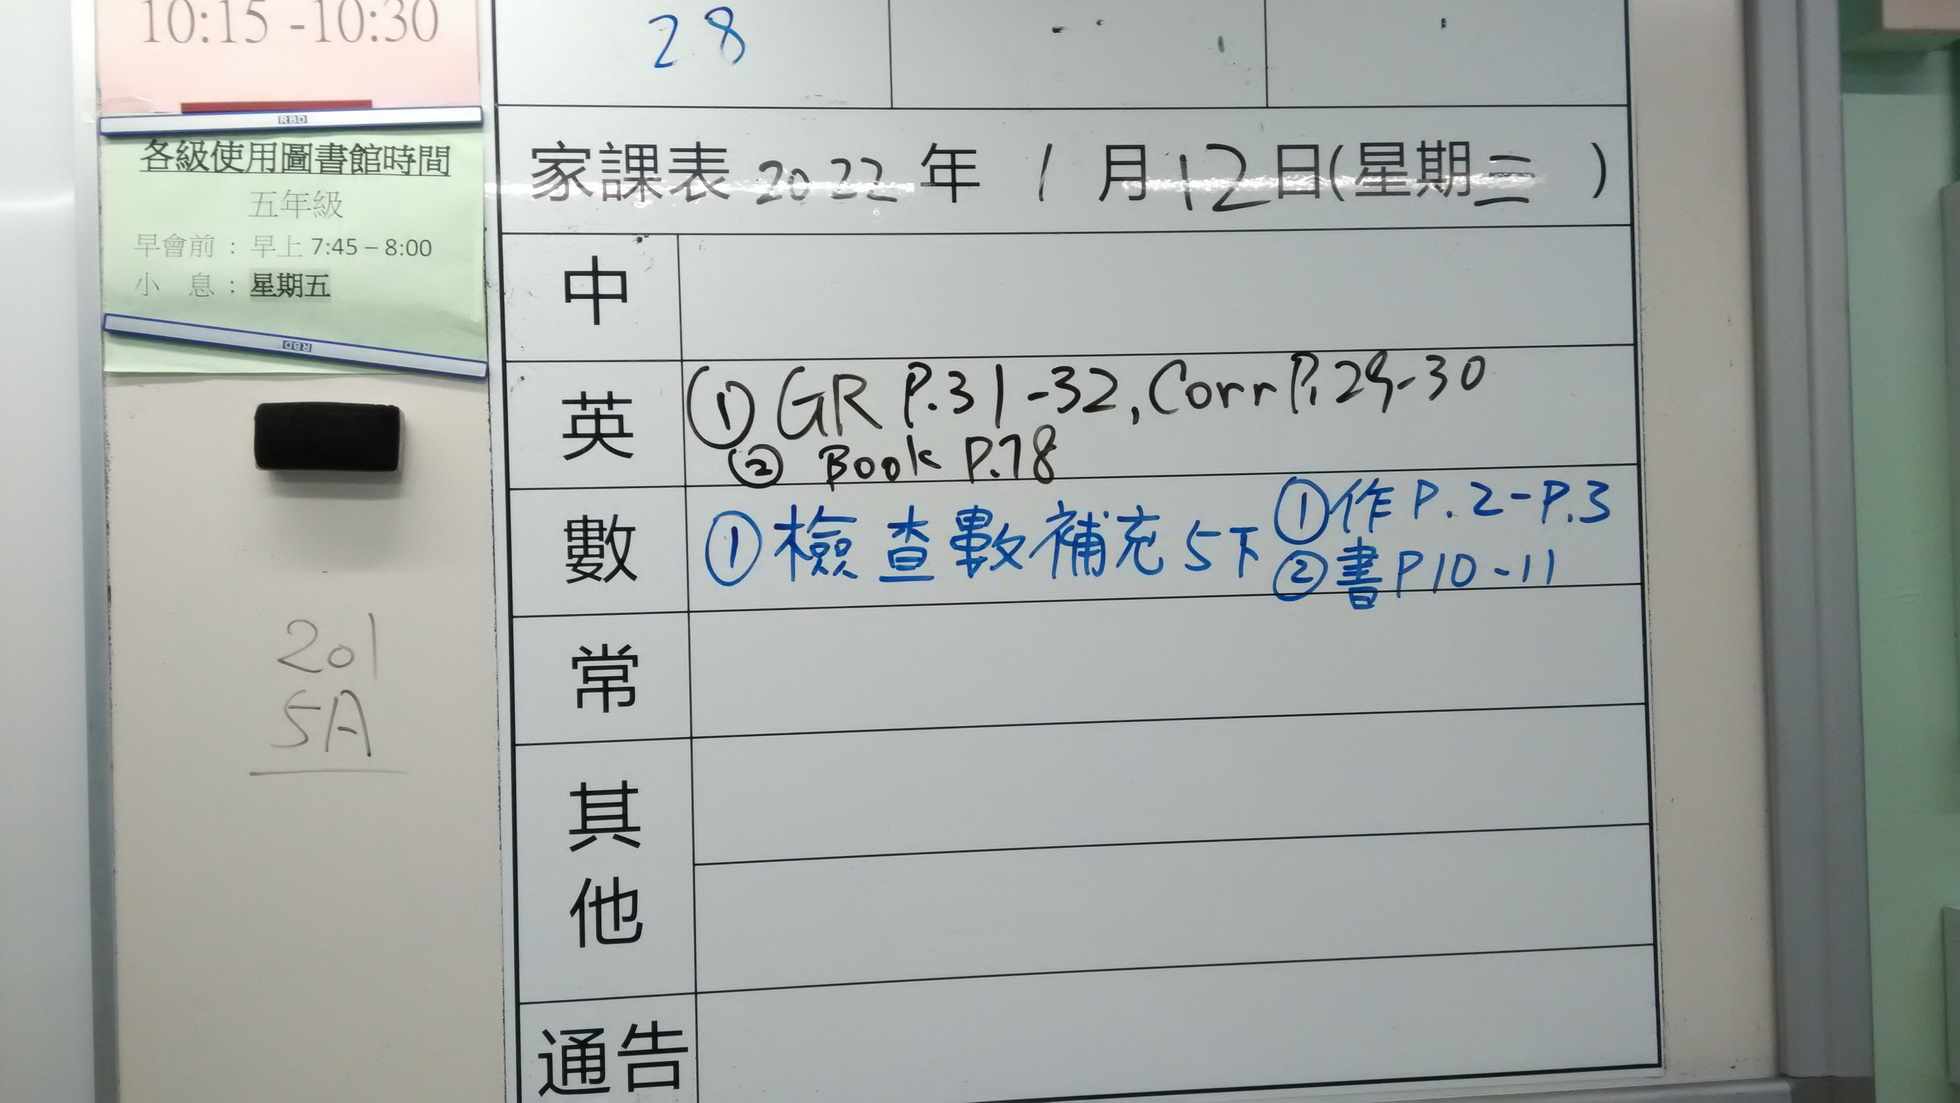 10:15 -10:30
RBD
各級使用圖書館時間
五年級
早會前：早上 7:45 – 8:00
小 息：星期五
RBD
201
5A
28
家課表 2022 年 1 月 12 日(星期三 )
中
英 ① GR P.31-32, Corr P.29-30
② Book P.78
數 ① 檢查數補充5下 ① 作 P.2-P.3
② 書 P10-11
常
其他
通告